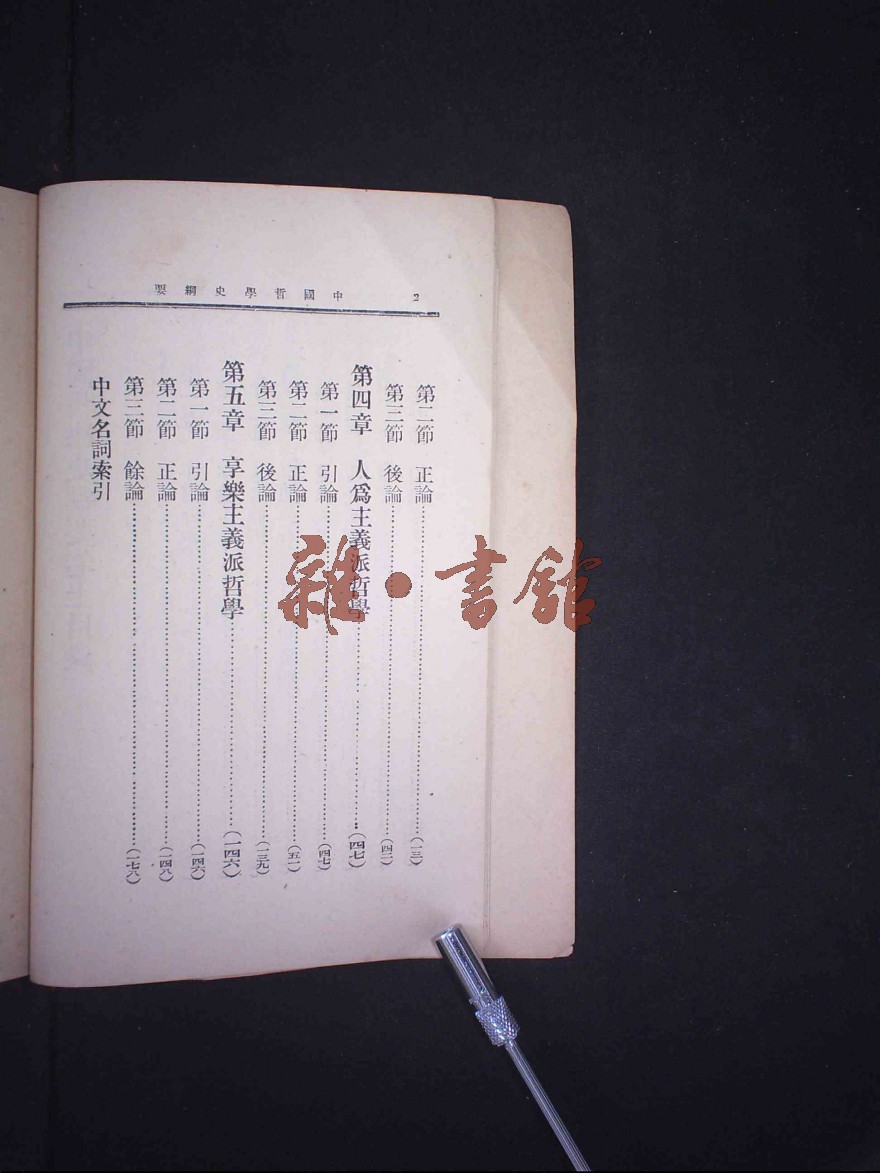 中國哲學史綱要 2
第二節 正論……(一三)
第三節 後論……(四二)
第四章 人爲主義派哲學……(四七)
第一節 引論……(四七)
第二節 正論……(五一)
第三節 後論……(一三九)
第五章 享樂主義派哲學……(一四六)
第一節 引論……(一四六)
第二節 正論……(一四八)
第三節 餘論……(一七八)
中文名詞索引
雜·書館